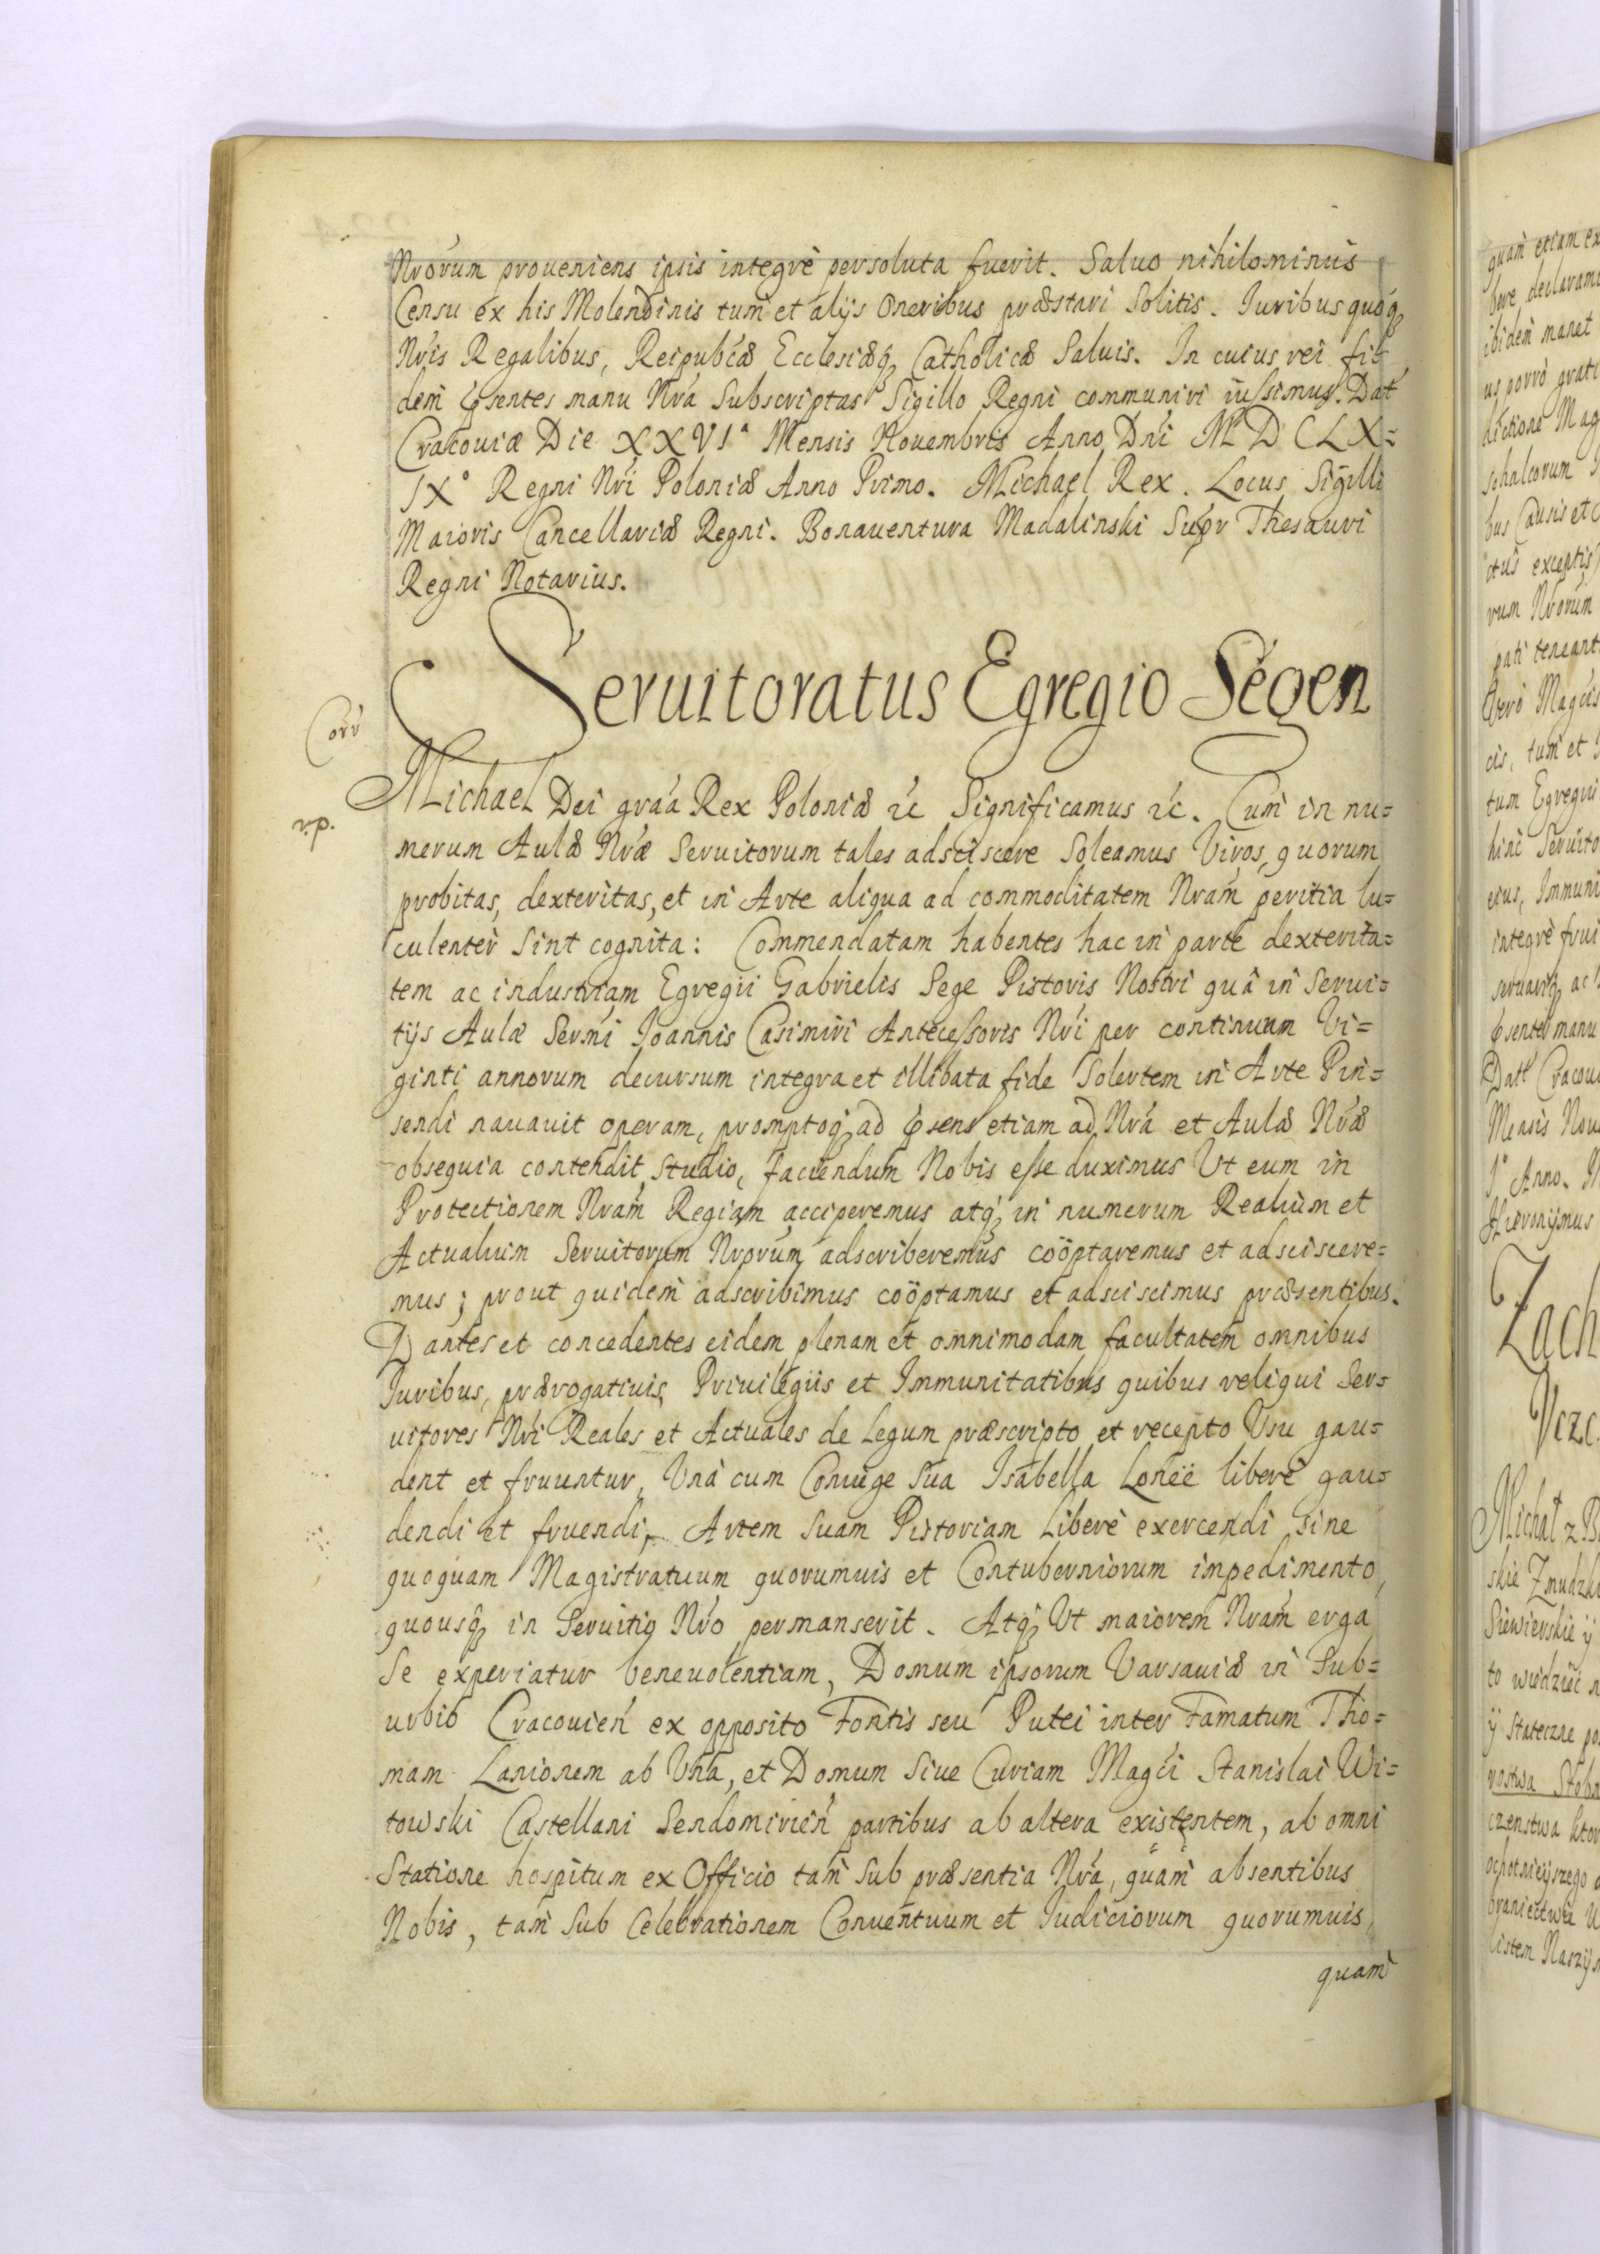 Nrórum proueniens ipsis integrè persoluta fuerit. Saluo nihilominùs
Censu éx his Molendinis tum et alijs Oneribus præstari Solitis. Iuribus quóq;
Nr̃is Regalibus, Reipubĉæ Ecclesiæq; Catholicæ Saluis. In cuius rei fi-
dem p̃sentes manu Nr̃a Subscriptas Sigillo Regni communiri iussimus. Dat́
Cracouiæ Die XXVIª Mensis Nouembris Anno Dńi M D CLX=
IX° Regni Nŕi Poloniæ Anno Primo. Michael Rex. Locus Sigilli
Maioris Cancellariæ Regni. Bonauentura Madalinski Supr Thesauri
Regni Notarius.
Seruitoratus Egregio Segen
Corr
Michael Dei graá Rex Poloniæ ꝛc Significamus ꝛc. Cum in nu=
r.p.
merum Aulæ Nræ Seruitorum tales adsciscere Soleamus Viros, quorum
probitas, dexteritas, et in Arte aliqua ad commoditatem Nram peritia lu=
culenter Sint cognita: Commendatam habentes hac in parte dexterita=
tem ac industriam Egregii Gabrielis Sege Pistoris Nostri quâ in Serui=
tijs Aulæ Serḿi Ioannis Casimiri Antecessoris Nŕi per continuum Vi=
ginti annorum decursum integra et illibata fide Solertem in Arte Pin=
sendi nauauit operam, promptoq; ad p̃sens etiam ad Nrá et Aulæ Nŕæ
obsequia contendit studio, faciendum Nobis esse duximus Vt eum in
Protectionem Nram Regiam acciperemus atq; in numerum Realium et
Actualium Seruitorum Nrorum adscriberemus coöptaremus et adsciscere=
mus; prout quidem adscribimus coöptamus et adsciscimus præsentibus.
Dantes et concedentes eidem plenam et omnimodam facultatem omnibus
Iuribus, prærogatiuis, Priuilegiis et Immunitatibus quibus reliqui Ser=
uitores Nŕi Reales et Actuales de Legum præscripto et recepto Vsu gau=
dent et fruuntur, Vnà cum Coniuge Sua Isabella Loneë liberè gau=
dendi et fruendi, Artem Suam Pistoriam Liberè exercendi sine
quoquam Magistratuum quorumuis et Contuberniorum impedimento,
quousq; in Seruitio Nró permanserit. Atq; Vt maiorem Nrám erga
Se experiatur beneuolentiam, Domum ipsorum Varsauiæ in Sub=
urbio Cracouień ex opposito Fontis seu Putei inter Famatum Tho=
mam Lanionem ab Vna, et Domum Siue Curiam Magći Stanislai Wi=
towski Castellani Sendomirień partibus ab altera existentem, ab omni
Statione hospitum ex Officio tam Sub præsentia Nrá, quam absentibus
Nobis, tam Sub Celebrationem Conuentuum et Iudiciorum quorumuis,
quam